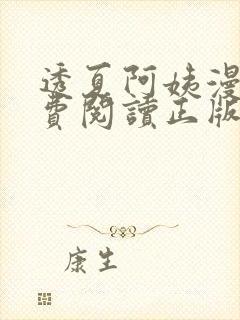 透夏阿姨漫
費閱讀正版
康生